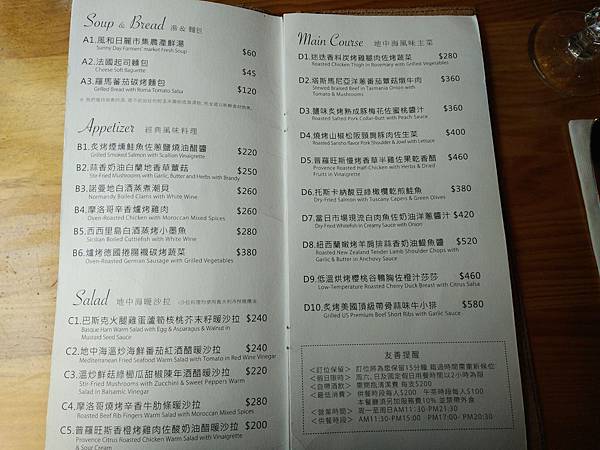 Soup & Bread 湯 & 麵包
A1.風和日麗市集農產鮮湯
Sunny Day Farmers' market Fresh Soup $60
A2.法國起司麵包
Cheese Soft Baguette $45
A3.羅馬番茄碳烤麵包
Grilled Bread with Roma Tomato Salsa $120
Appetizer 經典風味料理
B1.炙烤煙燻鮭魚佐蔥鹽燒油醋醬
Grilled Smoked Salmon with Scallion Vinaigrette $220
B2.蒜香奶油白蘭地香草蕈菇
Stir-Fried Mushrooms with Garlic, Butter and Herbs with Brandy $250
B3.諾曼地白酒蒸煮潮貝
Normandy Boiled Clams with White Wine $260
B4.摩洛哥辛香爐烤雞肉
Oven-Roasted Chicken with Moroccan Mixed Spices $260
B5.西西里島白酒蒸烤小墨魚
Sicilian Boiled Cuttlefish with White Wine $280
B6.爐烤德國捲腸襯碳烤蔬菜
Oven-Roasted German Sausage with Grilled Vegetables $380
Salad 地中海暖沙拉
C1.巴斯克火腿雞蛋蘆筍核桃芥末籽暖沙拉 $240
Basque Ham Warm Salad with Egg & Asparagus & Walnut in
Mustard Seed Sauce
C2.地中海溫炒海鮮番茄紅酒醋暖沙拉 $240
Mediterranean Fried Seafood Warm Salad with Tomato in Red Wine Vinegar
C3.溫炒鮮菇綠櫛瓜甜椒陳年酒醋暖沙拉 $220
Stir-Fried Mushrooms with Zucchini & Sweet Peppers Warm
Salad in Balsamic Vinegar
C4.摩洛哥燒烤辛香牛肋條暖沙拉 $280
Roasted Beef Rib Fingers Warm Salad with Moroccan Mixed Spices
C5.普羅旺斯香橙烤雞肉佐酸奶油油醋暖沙拉 $200
Provence Citrus Roasted Chicken Warm Salad with Vinaigrette
& Sour Cream
Main Course 地中海風味主菜
D1.迷迭香料炭烤雞腿肉佐烤蔬菜 $280
Roasted Chicken Thigh in Rosemary with Grilled Vegetables
D2.塔斯馬尼亞洋蔥番茄蕈菇燉牛肉 $360
Stewed Braised Beef in Tasmania Onion with
Tomato & Mushrooms
D3.鹽味炙烤熟成豚梅花佐蜜桃醬汁 $360
Roasted Salted Pork Collar-Butt with Peach Sauce
D4.燒烤山椒松阪頸肩豚肉佐生菜 $400
Roasted Sansho flavor Pork Shoulder & Jowl with Lettuce
D5.普羅旺斯慢烤香草半雞佐果乾香醋 $460
Provence Roasted Half-Chicken with Herbs & Dried
Fruits in Vinaigrette
D6.托斯卡納酸豆綠橄欖乾煎鮭魚 $380
Dry-Fried Salmon with Tuscany Capers & Green Olives
D7.當日市場現流白肉魚佐奶油洋蔥醬汁 $420
Dry-Fried Whitefish in Creamy Sauce with Onion
D8.紐西蘭嫩烤羊肩排蒜香奶油鯷魚醬 $520
Roasted New Zealand Tender Lamb Shoulder Chops with
Garlic & Butter in Anchovy Sauce
D9.低溫烘烤櫻桃谷鴨胸佐橙汁莎莎 $460
Low-Temperature Roasted Cherry Duck Breast with Citrus Salsa
D10.炙烤美國頂級帶骨蒜味牛小排 $580
Grilled US Premium Beef Short Ribs with Garlic Sauce
友善提醒
<訂位保留> 訂位將為您保留15分鐘,超過時間需重新候位
<假日限時> 周六.日及國定假日用餐時間以2小時為限
<自帶酒款> 東撒瓶清潔費 每支$200
<最低消費> 供餐時段每人$200 午茶時段每人$100
本餐廳須另加服務費10% 並禁帶外食
<營業時間> 周一至周日AM11:30-PM21:30
<供餐時段> AM11:30-PM15:00 PM17:00- PM20:30